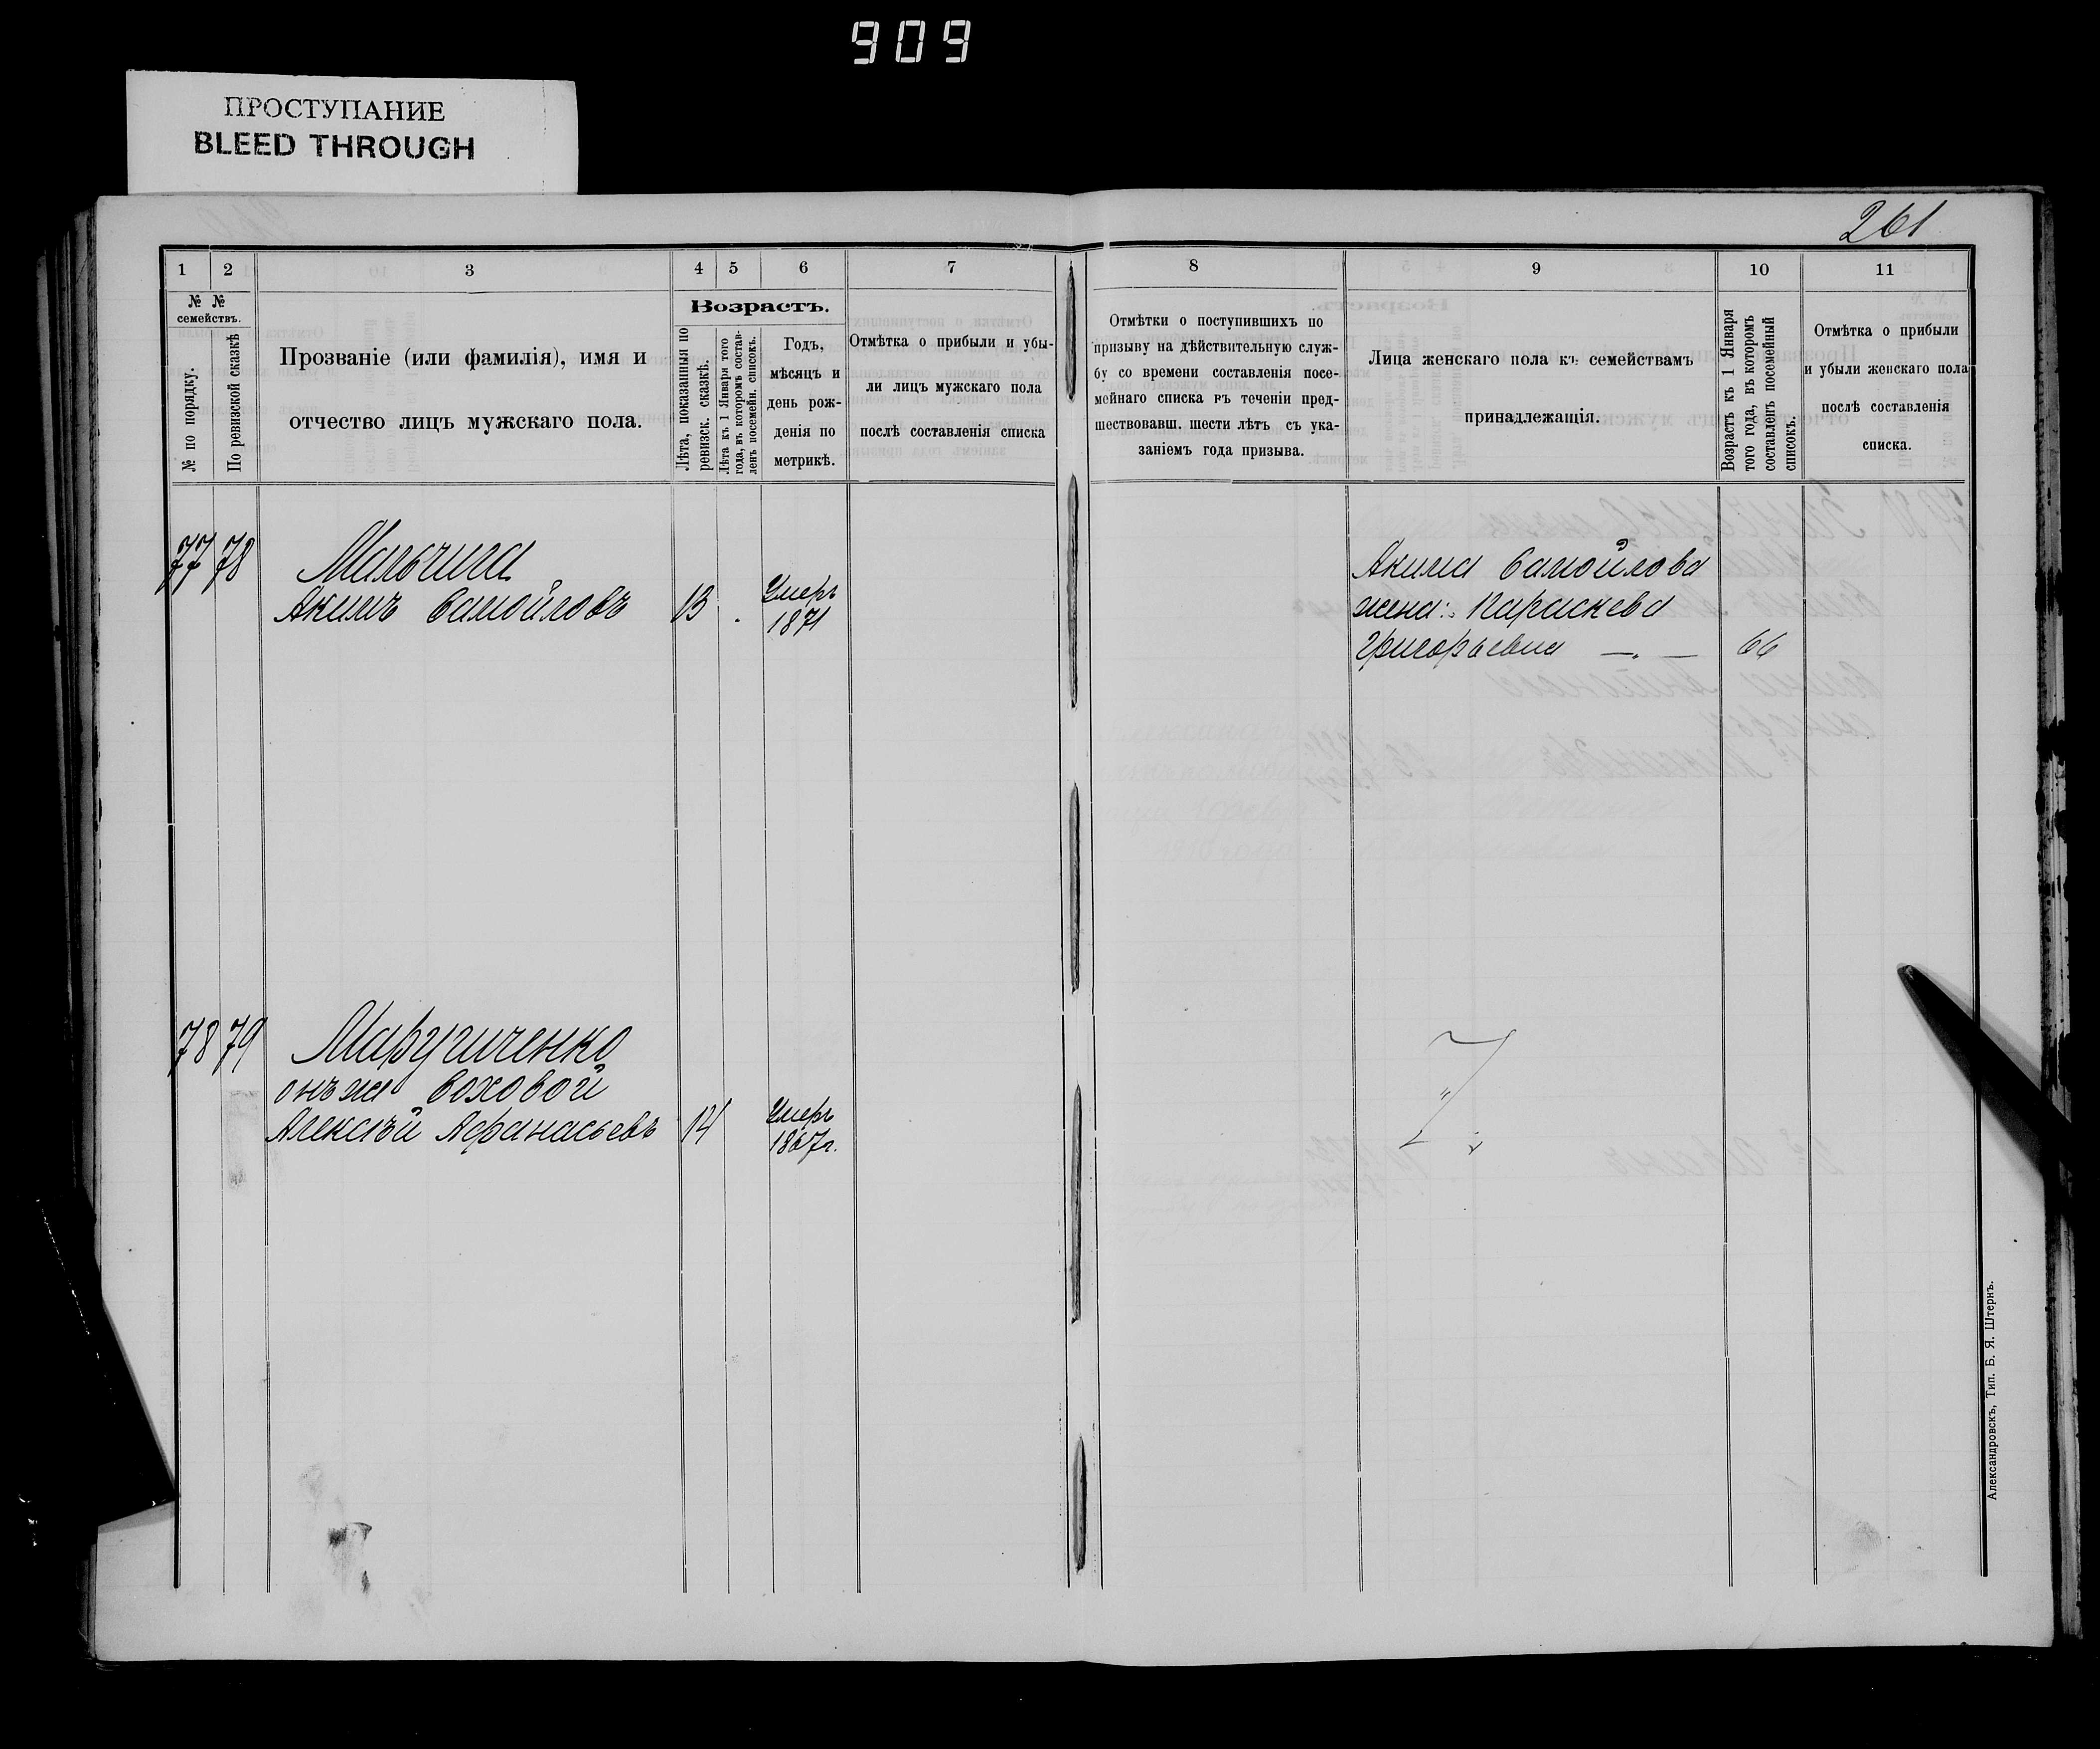 909
ПРОСТУПАНИЕ
BLEED THROUGH
261
1 2 3 4 5 6 7 8 9 10 11
№ № семействъ.
№ по порядку.
По ревизской сказкѣ
Прозваніе (или фамилія), имя и
отчество лицъ мужскаго пола.
Возрастъ.
Лѣта, показанныя по
ревизск. сказкѣ.
Лѣта къ 1 Января того
года, въ которомъ состав-
ленъ посемейн. списокъ.
Годъ,
мѣсяцъ и
день рож-
денія по
метрикѣ.
Отмѣтка о прибыли и убы-
ли лицъ мужскаго пола
послѣ составленія списка
Отмѣтки о поступившихъ по
призыву на дѣйствительную служ-
бу со времени составленія посе-
мейнаго списка въ теченіи пред-
шествовавш. шести лѣтъ съ ука-
заніемъ года призыва.
Лица женскаго пола къ семействамъ
принадлежащія.
Возрастъ къ 1 Января
того года, въ которомъ
составленъ посемейный
списокъ.
Отмѣтка о прибыли
и убыли женскаго пола
послѣ составленія
списка.
77 78 Мальчига
Акимъ Самойловъ 13 Умеръ
1871
Акима Самойлова
жена: Параскева
Григорьевна —.— 66
78 79 Маругиченко
онъ же Боховой
Алексѣй Афанасьевъ 14 Умеръ
1867г.
Александровскъ, Тип. Б. Я. Штернъ.